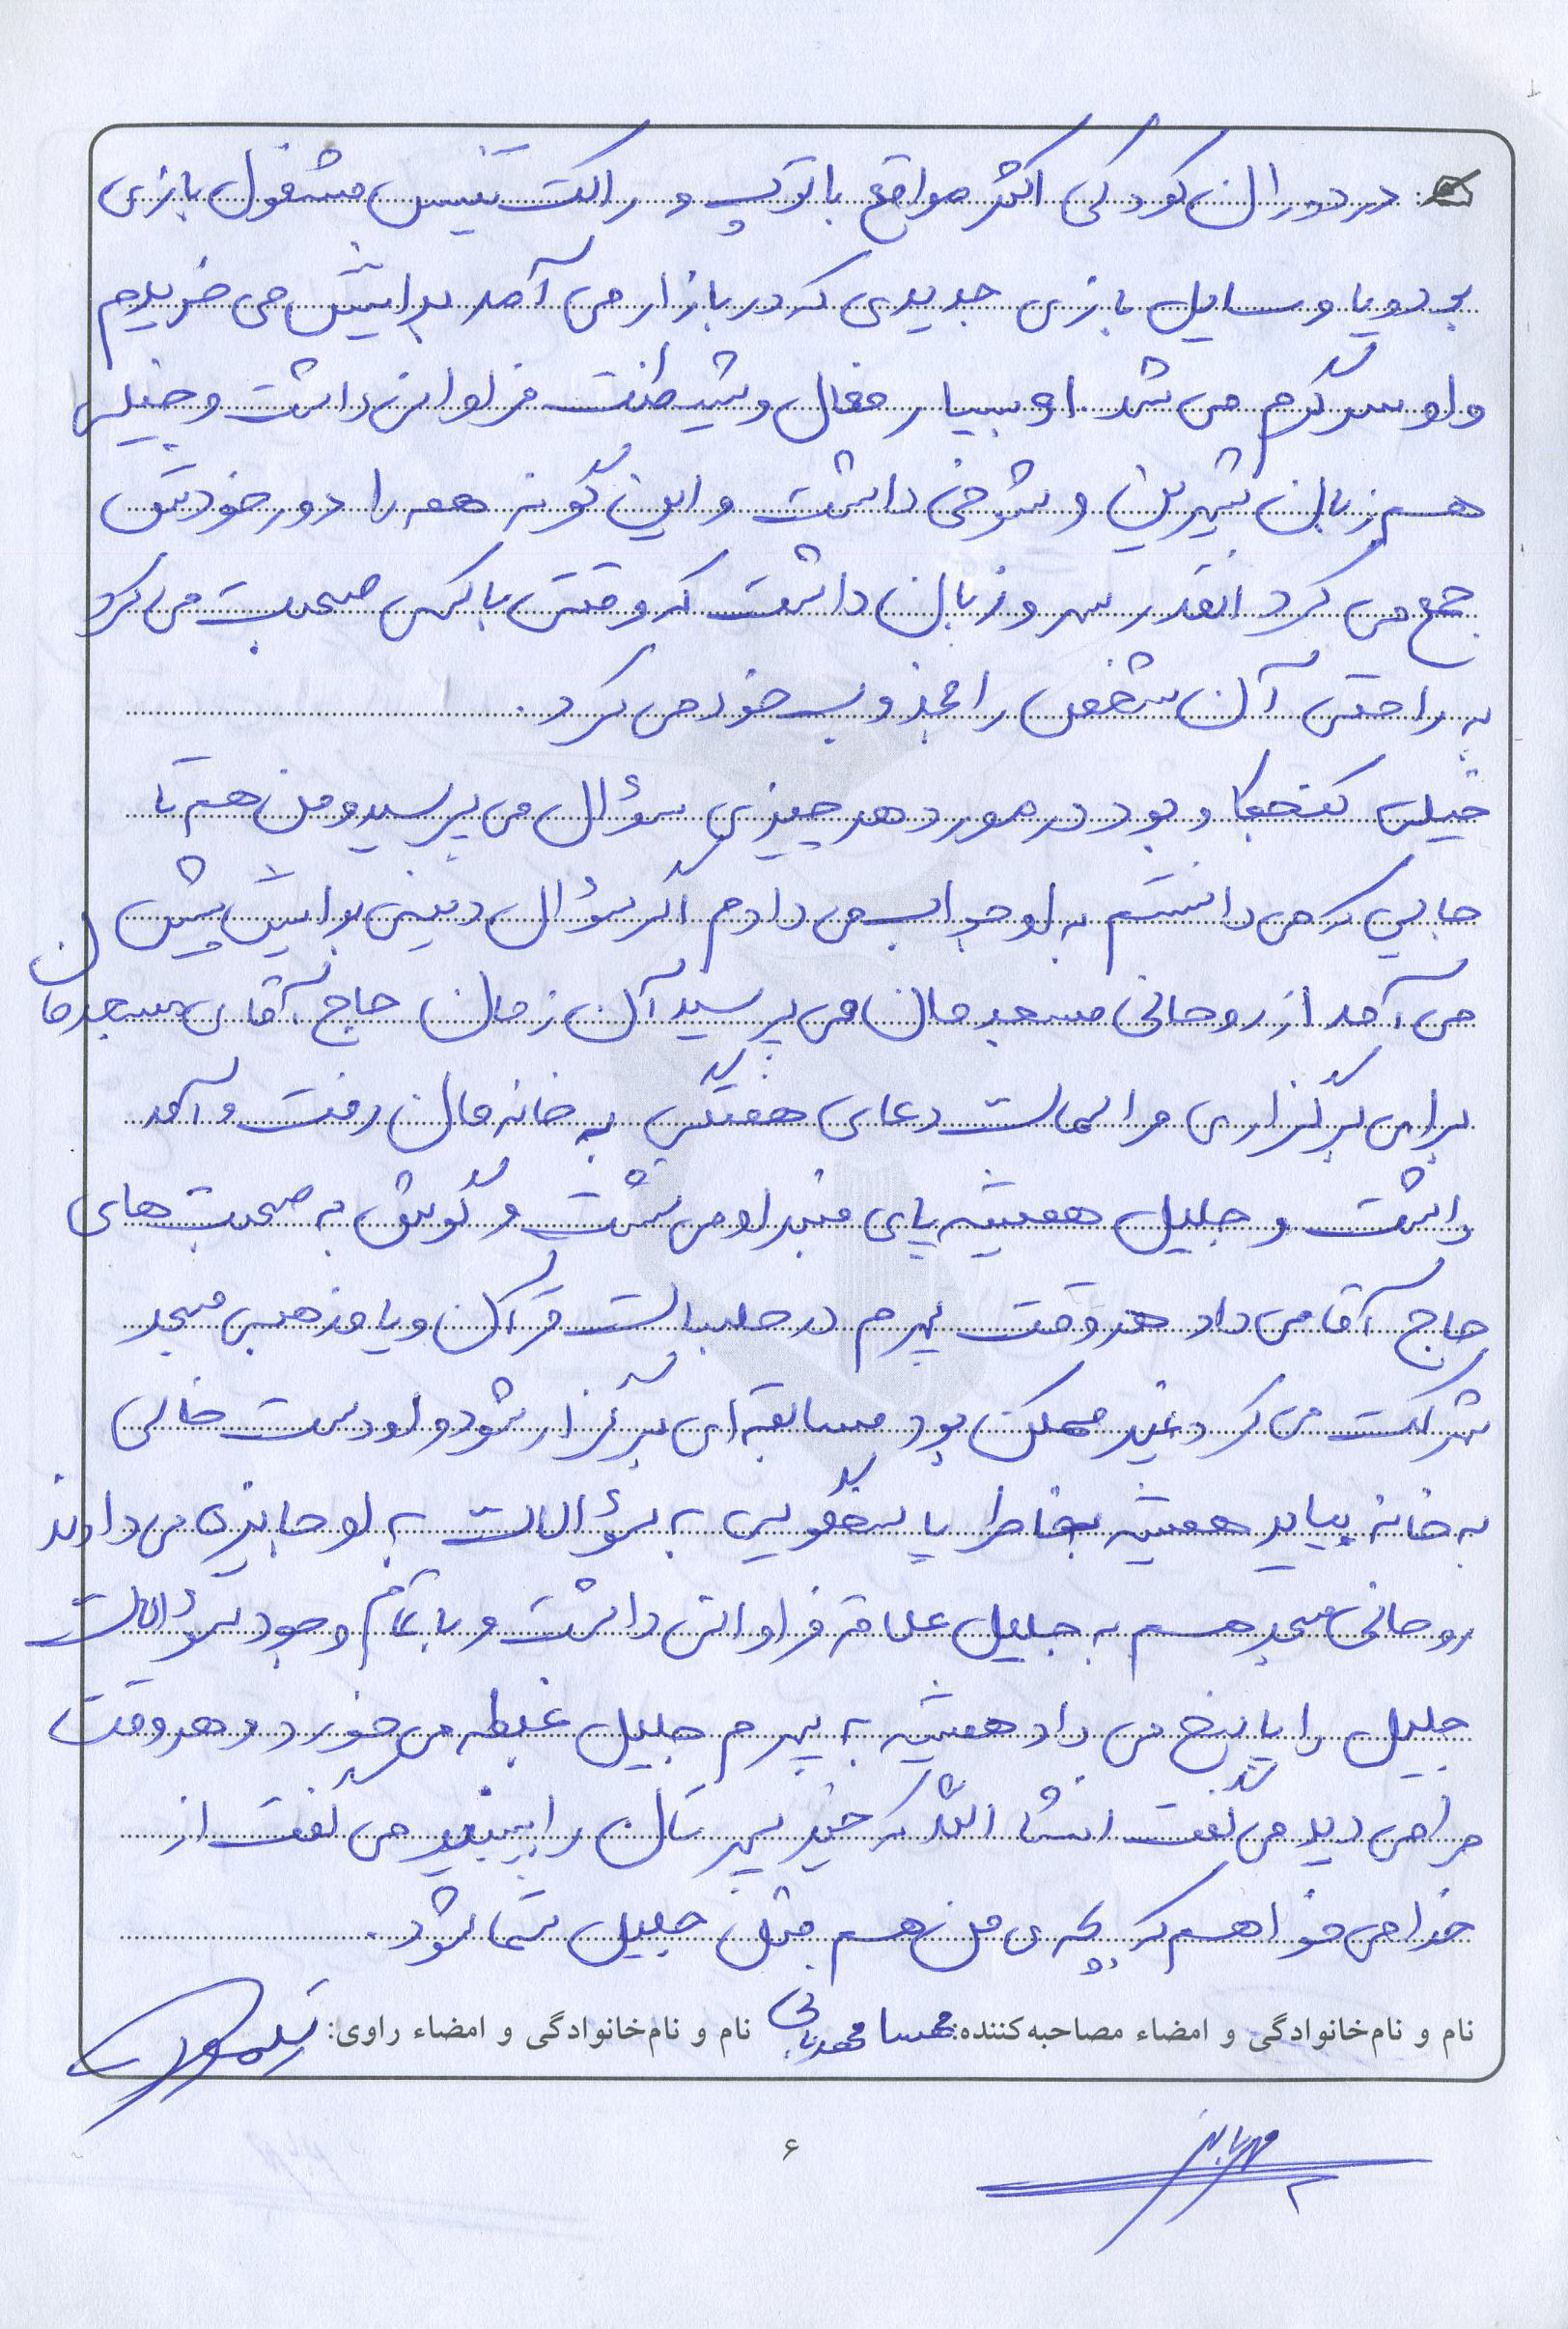 در دوران کودکی اکثر مواقع با توپ و راکت تنیس مشغول بازی
بود و یا وسایل بازی جدیدی که در بازار می آمد برایش می خریدم
و او سرگرم می شد. او بسیار فعال و شیطنت فراوانی داشت و خیلی
هم زبان شیرین و شوخی داشت و این گونه همه را دور خودش
جمع می کرد انقدر سر و زبان داشت که وقتی با کسی صحبت می کرد
به راحتی آن شخص را مجذوب خود می کرد.
خیلی کنجکاو بود در مورد هر چیزی سؤال می پرسید و من هم تا
جایی که می دانستم به او جواب می دادم اگر سؤال دینی برایش پیش
می آمد از روحانی مسجدمان می پرسید آن زمان حاج آقای مسجدمان
برای برگزاری مراسمات دعای هفتگی به خانه مان رفت و آمد
داشت و جلیل همیشه پای منبر او می نشست و گوش به صحبت های
حاج آقا می داد هر وقت پسرم در جلسات قرآن و یا مذهبی مسجد
شرکت می کرد غیر ممکن بود مسابقه ای برگزار شود و او دست خالی
به خانه بیاید همیشه بخاطر پاسخگویی به سؤالات به او جایزه می دادند
روحانی مسجد هم به جلیل علاقه فراوانی داشت و با تمام وجود سؤالات
جلیل را پاسخ می داد همیشه به پسرم جلیل غبطه می خورد و هر وقت
مرا می دید می گفت انشا الله که خیر پسرتان را ببینید می گفت از
خدا می خواهم که بچه ی من هم مثل جلیل شما شود.
نام و نام‌خانوادگی و امضاء مصاحبه‌کننده: مهسا مهربانی نام و نام‌خانوادگی و امضاء راوی:
۶